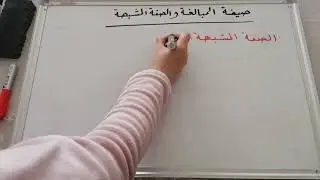 صيغة المبالغة والصفة المشبهة
الصفة المشبهة